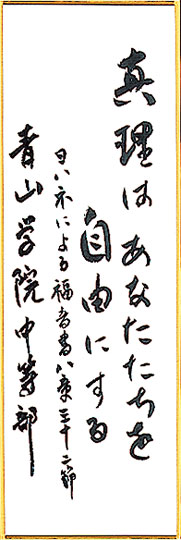 真理はあなたたちを
自由にする
ヨハネによる福音書八章三十二節
青山学院中等部